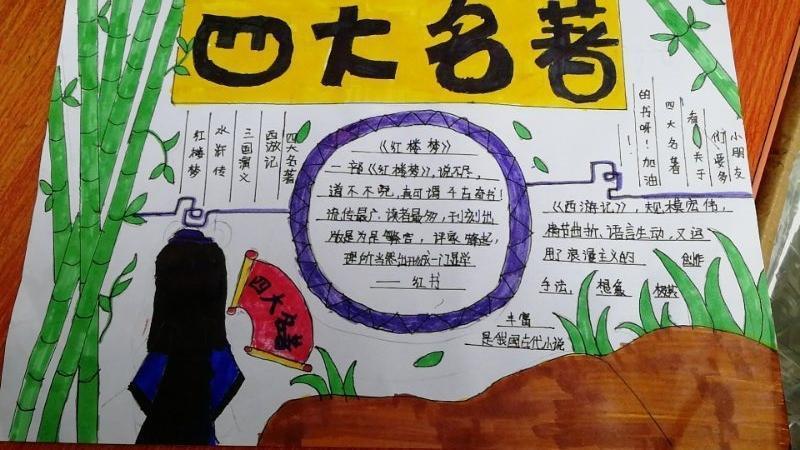 四大名著
四大名著
西游记
三国演义
水浒传
红楼梦
《红楼梦》
一部《红楼梦》,说不尽,
道不不完,真可谓千古奇书!
流传最广,读者最多,刊刻出
版是为
评家
理所当然出形成一门显学
——红书
小朋友
们要多
看关于
四大名著
的书呀!加油
!
《西游记》,规模宏伟,
情节曲折,语言生动,又运
用了浪漫主义的 创作
手法, 想象
丰富
是我国古代小说
四大名著